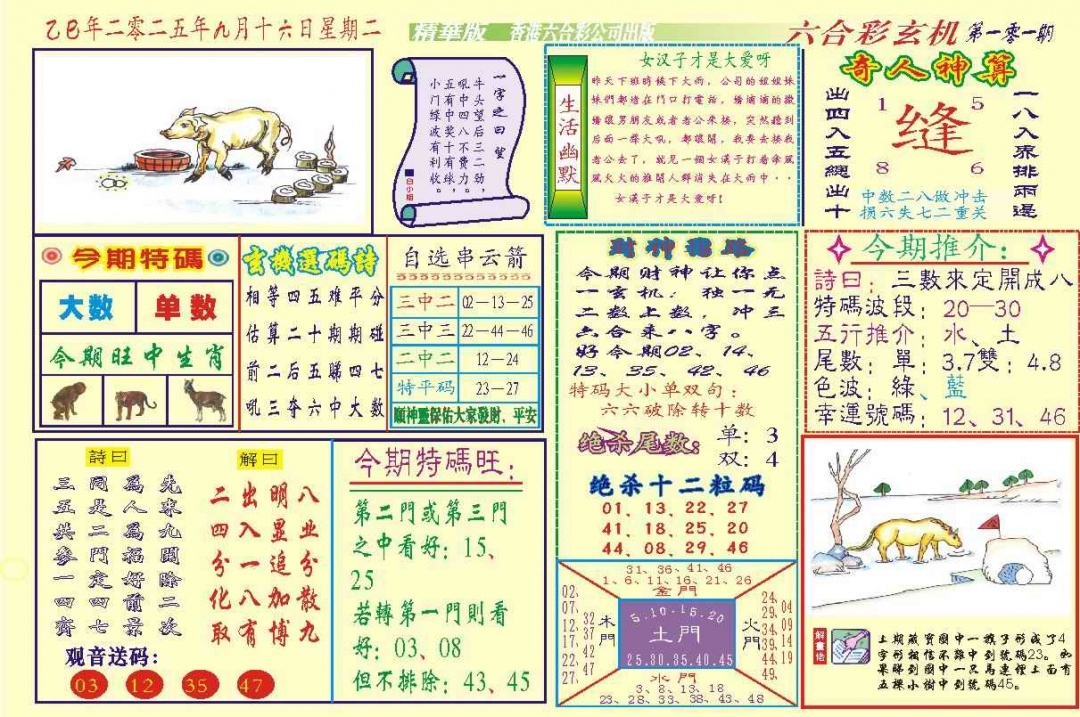 乙巳年二零二五年九月十六日星期二
精華版 香港六合彩公司出版
六合彩玄机 第一零一期
一字之曰望
牛头望后三二劲
吼中四八不费力
五有中奖十有球
小门绿波有利收
白小姐
生活幽默
女汉子才是大爱呀
昨天下班時候下大雨，公司的姐姐妹
妹們都堵在門口打電話，
后面一聲大吼，都讓開，我要去接我
老公去了，就見一個女漢子打着傘風
風火火的推開人群消失在大雨中··
女漢子才是大愛呀！
奇人神算
出四入五總出十
1 5
缝
8 6
一八入界排兩邊
中数二八做冲击
损六失七二重关
今期特碼
大数 单数
今期旺中生肖
玄機選碼詩
相等四五难平分
估算二十期期碰
前二后五睇四七
吼三夺六中大数
自选串云箭
三中二 02—13—25
三中三 22—44—46
二中二 12—24
特平码 23—27
順神靈保佑大家發財、平安
财神
今期财神让你点
一玄机：独一无
二数上数，冲三
六合来八字。
好令期02、14、
13、35、42、46
特码大小单双句：
六六破除转十数
绝杀尾数： 单：3
双：4
绝杀十二粒码
01、13、22、27
41、18、25、20
44、08、29、46
今期推介：
詩曰：三數來定開成八
特碼波段：20—30
五行推介：水、土
尾數：單：3.7雙：4.8
色波：綠、藍
幸運號碼：12、31、46
詩曰
三同爲先
五是人來
共二爲九
參門福開
一定好除
四四前二
齊七景次
解曰
二出明八
四入显业
分一追分
化八加散
取有博九
观音送码：
03 12 35 47
今期特碼旺：
第二門或第三門
之中看好：15、
25
若轉第一門則看
好：03、08
但不排除：43、45
31、36、41、46
1、6、11、16、21、26
金門
02、07、12、17、22、27、
32 37 42 47
木門
5.10.15.20
土門
25.30.35.40.45
火門
24、29、34、39、44、49
04 09 14 19
水門
3、8、13、18
23、28、33、38、43、48
解畫佬
上期藏寶圖中一猴子形成了4
字形相信不難中到號碼23。如
果睇到圖中一只馬連埋上面有
五棵小樹中到號碼45。